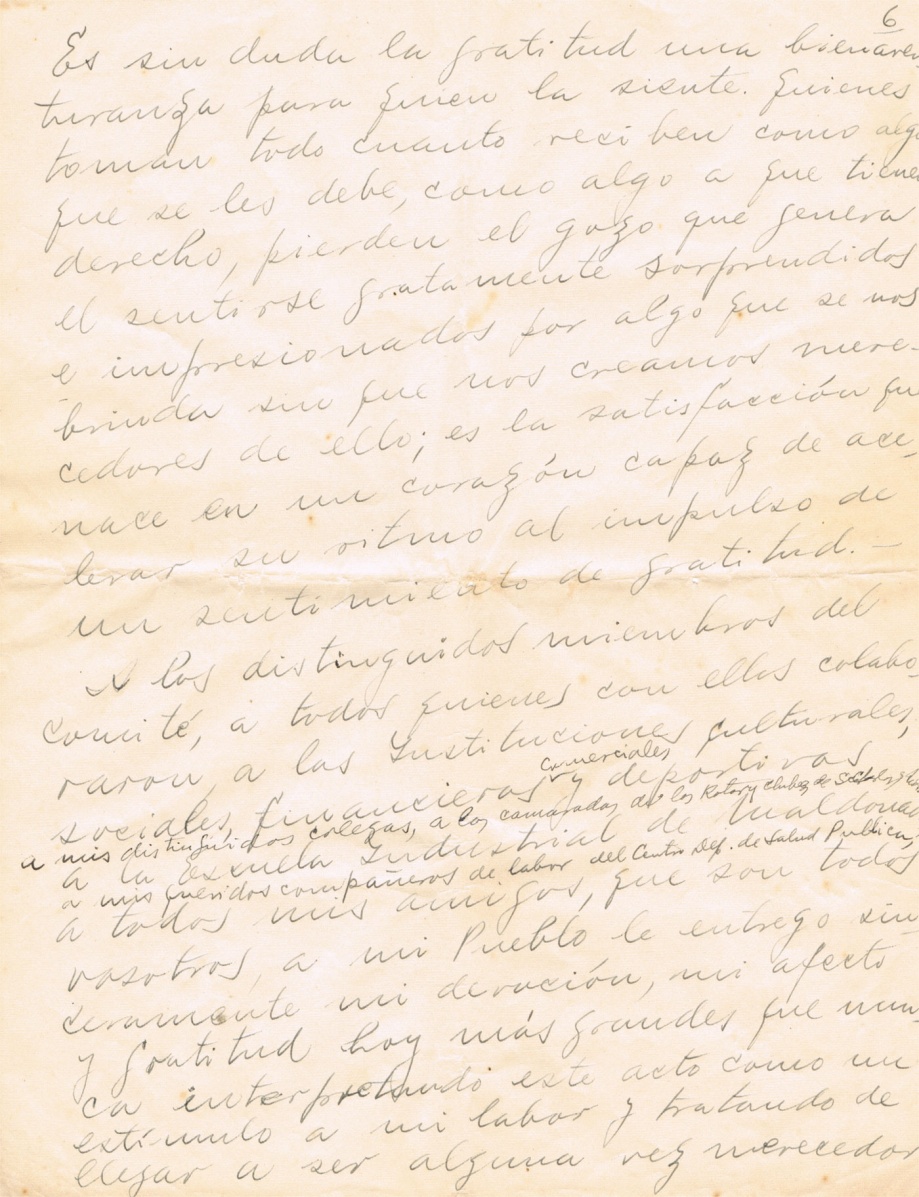 6
Es sin duda la gratitud una bienaven
turanza para quien la siente. Quienes
toman todo cuanto reciben como algo
que se les debe, como algo a que tienen
derecho, pierden el gozo que genera
el sentirse gratamente sorprendidos
e impresionados por algo que se nos
brinda sin que nos creamos mere-
cedores de ello; es la satisfacción qu
nace en un corazón capaz de ace-
lerar su ritmo al impulso de
un sentimiento de gratitud. —
A los distinguidos miembros del
comité, a todos quienes con ellos colabo-
raron, a las Instituciones culturales,
comerciales
sociales, financieras y deportivas
a mis distinguidos colegas, a los camaradas de los Rotary clubes de
a la Escuela Industrial de Maldonado
a mis queridos compañeros de labor del Centro Dep. de Salud Pública,
a todos mis amigos, que son todos
vosotros, a mi Pueblo le entrego sin-
ceramente mi devoción, mi afecto
y gratitud hoy más grandes que nun-
ca interpretando este acto como un
estímulo a mi labor y tratando de
llegar a ser alguna vez merecedor